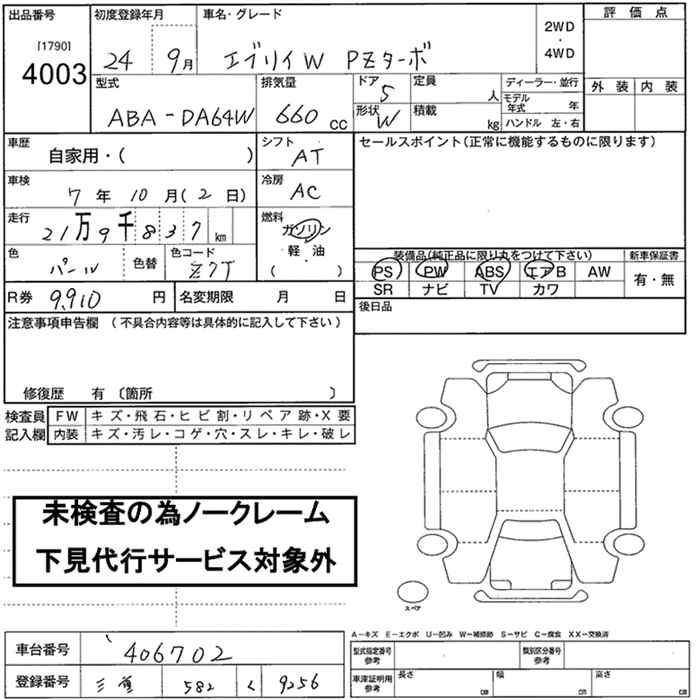 出品番号 初度登録年月 車名・グレード 2WD・4WD 評価点
[1790]
4003 24年 9月 エブリイW PZターボ
外装 内装
型式 排気量 ドア 定員 ディーラー・並行
ABA-DA64W 660 cc 5 人 モデル年式 年
形状 W 積載 kg ハンドル 左・右
車歴 自家用・( ) シフト AT セールスポイント(正常に機能するものに限ります)
車検 7年 10月(2日) 冷房 AC
走行 21万9千837km 燃料 ガソリン
軽・油
( )
色 パール 色替 色コード Z7T
装備品(純正品に限り丸をつけて下さい) 新車保証書
PS PW ABS エアB AW 有・無
SR ナビ TV カワ
R券 9,910円 名変期限 月 日 後日品
注意事項申告欄 (不具合内容等は具体的に記入して下さい)
修復歴 有 〔箇所 〕
検査員 FW キズ・飛石・ヒビ割・リペア跡・X要
記入欄 内装 キズ・汚レ・コゲ・穴・スレ・キレ・破レ
未検査の為ノークレーム
下見代行サービス対象外
スペア
A-キズ E-エクボ U-凹み W-補修跡 S-サビ C-腐食 XX-交換済
車台番号 406702 型式指定番号 参考 類別区分番号 参考
登録番号 三重 582 く 9256 車庫証明用 参考 長さ cm 幅 cm 高さ cm